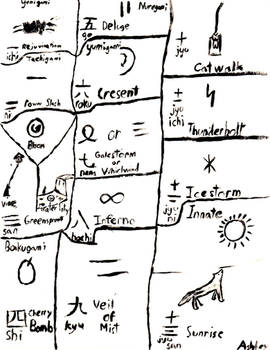 ichi
Rejuvenation
ni
Power Slash
Bloom
Vine
三
san
Greensprout
Bakugami
四
shi
Cherry
Bomb
五
go
Deluge
yumigami
六
roku
Cresent
or
Galestorm
or
Whirlwind
nana
hachi
Inferno
九
kyu
Veil
of
Mist
Nuregami
十
jyu
Catwalk
十一
jyu
ichi
Thunderbolt
十二
jyu
ni
Icestorm
Innate
十三
jyu
san
Sunrise